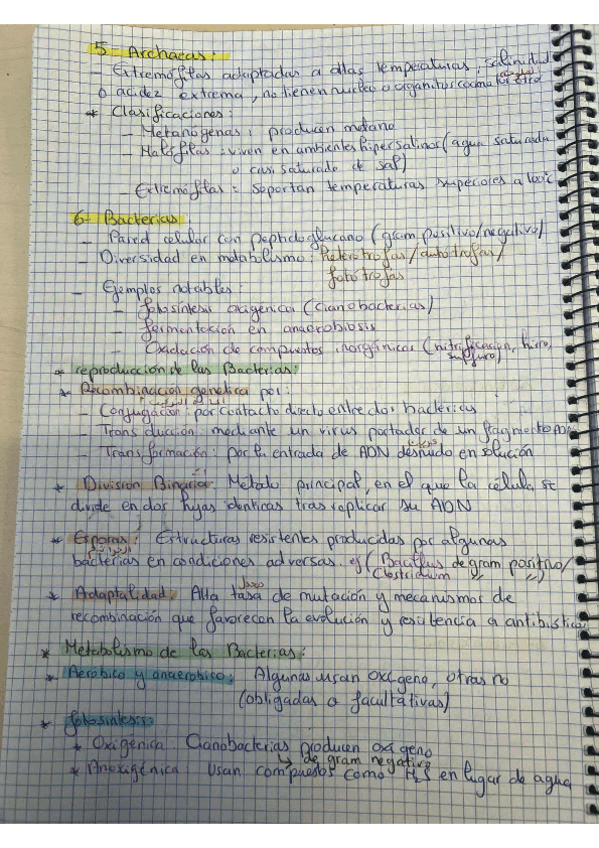 5 - Archaeas:
- Extremófilas adaptadas a altas temperaturas, salinidad
o acidez extrema, no tienen nucleo o organitos como
* Clasificaciones:
- Metanógenas: producen metano
- Halófilas: viven en ambientes hipersalinos (agua saturada
o casi saturado de sal)
- Extremofilas = soportan temperaturas superiores a 100°C
6- Bacterias
- Pared celular con peptidoglucano (gram positivo/negativo)
- Diversidad en matabolismo: heterotrofas/autótrofas/
fotótrofas
- Ejemplos notables:
- fotosíntesis oxigénica (cianobacterias)
- fermentación en anaerobiosis
- Oxidación de compuestos inorgánicos (nitrificación, hierro,
sulfuro)
* reproducción de las Bacterias:
* Recombinación genética por:
- Conjugación: por contacto directo entre dos bactérias
- Transducción: mediante un virus portador de un fragmento ADN
- Transformación: por la entrada de ADN desnudo en solución
* División Binaria: Metodo principal, en el que la célula se
divide en dos hijas identicas tras replicar su ADN
* Esporas: Estructuras resistentes producidas por algunas
bacterias en condiciones adversas. ej (Bacillus de gram positivo/
Clostridium " ")
* Adaptalidad: Alta tasa de mutación y mecanismos de
recombinación que favorecen la evolución y resistencia a antibisticos
* Metabolismo de las Bacterias:
* Aeróbico y anaerobico: Algunas usan oxígeno, otras no
(obligadas o facultativas)
* fotosintesis:
* Oxigénica: Cianobacterias producen oxigeno
↳ de gram negativo
* Anoxigénica: Usan compuestos como H2S en lugar de agua